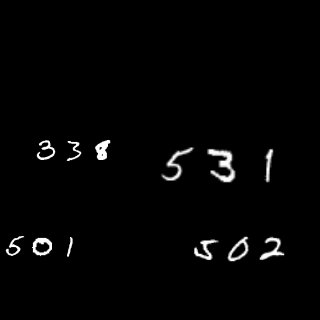 338
531
501
502